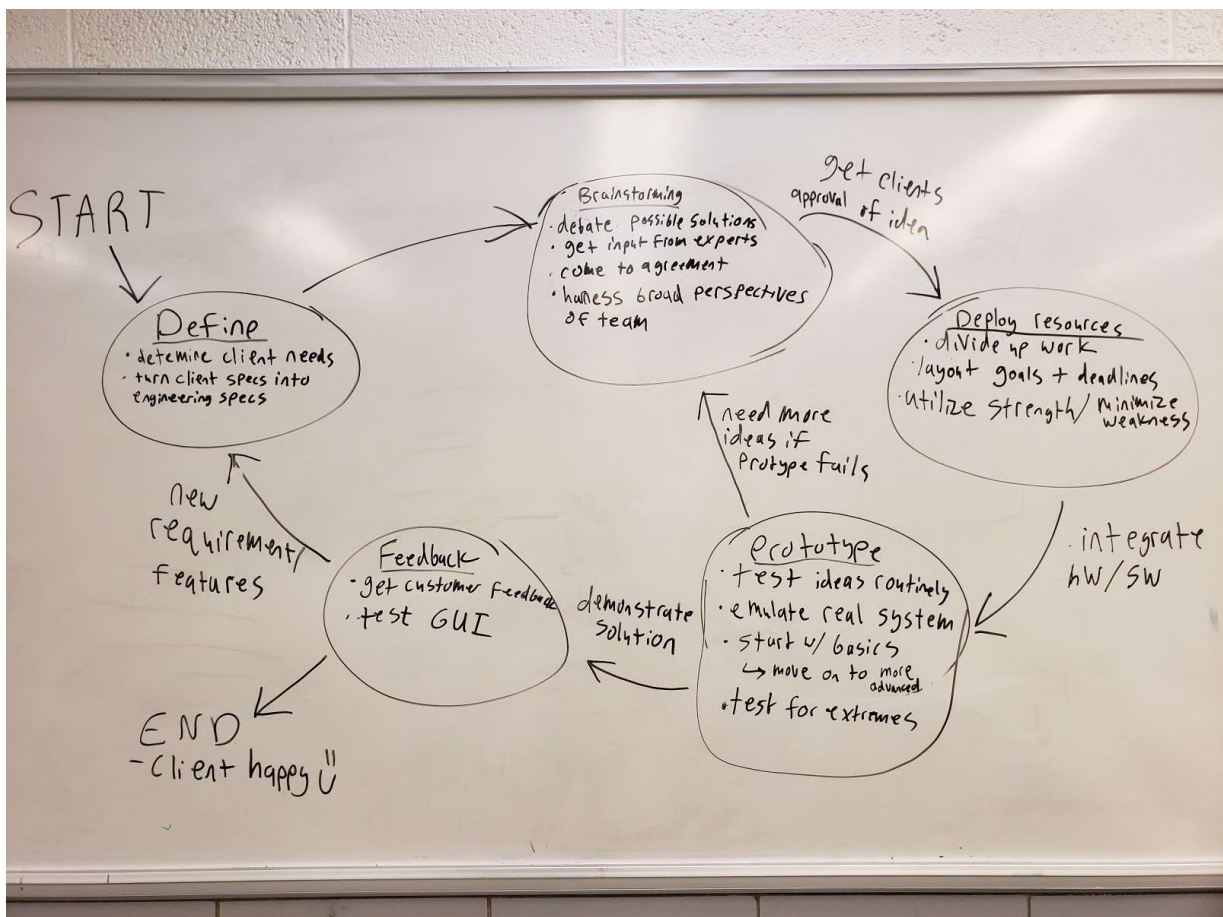 START
Define
· detemine client needs
· turn client specs into
engineering specs
Brainstorming
· debate possible solutions
· get input from experts
· come to agreement
· harness broad perspectives
of team
get clients
approval of idea
Deploy resources
· divide up work
· layout goals + deadlines
· utilize strength/ minimize
weakness
· integrate
hW/SW
Prototype
· test ideas routinely
· emulate real system
· start w/ basics
↳ move on to more
advanced
· test for extremes
need more
ideas if
Protype fails
demonstrate
solution
Feedback
· get customer feedback
· test GUI
new
requirement/
features
END
- Client happy